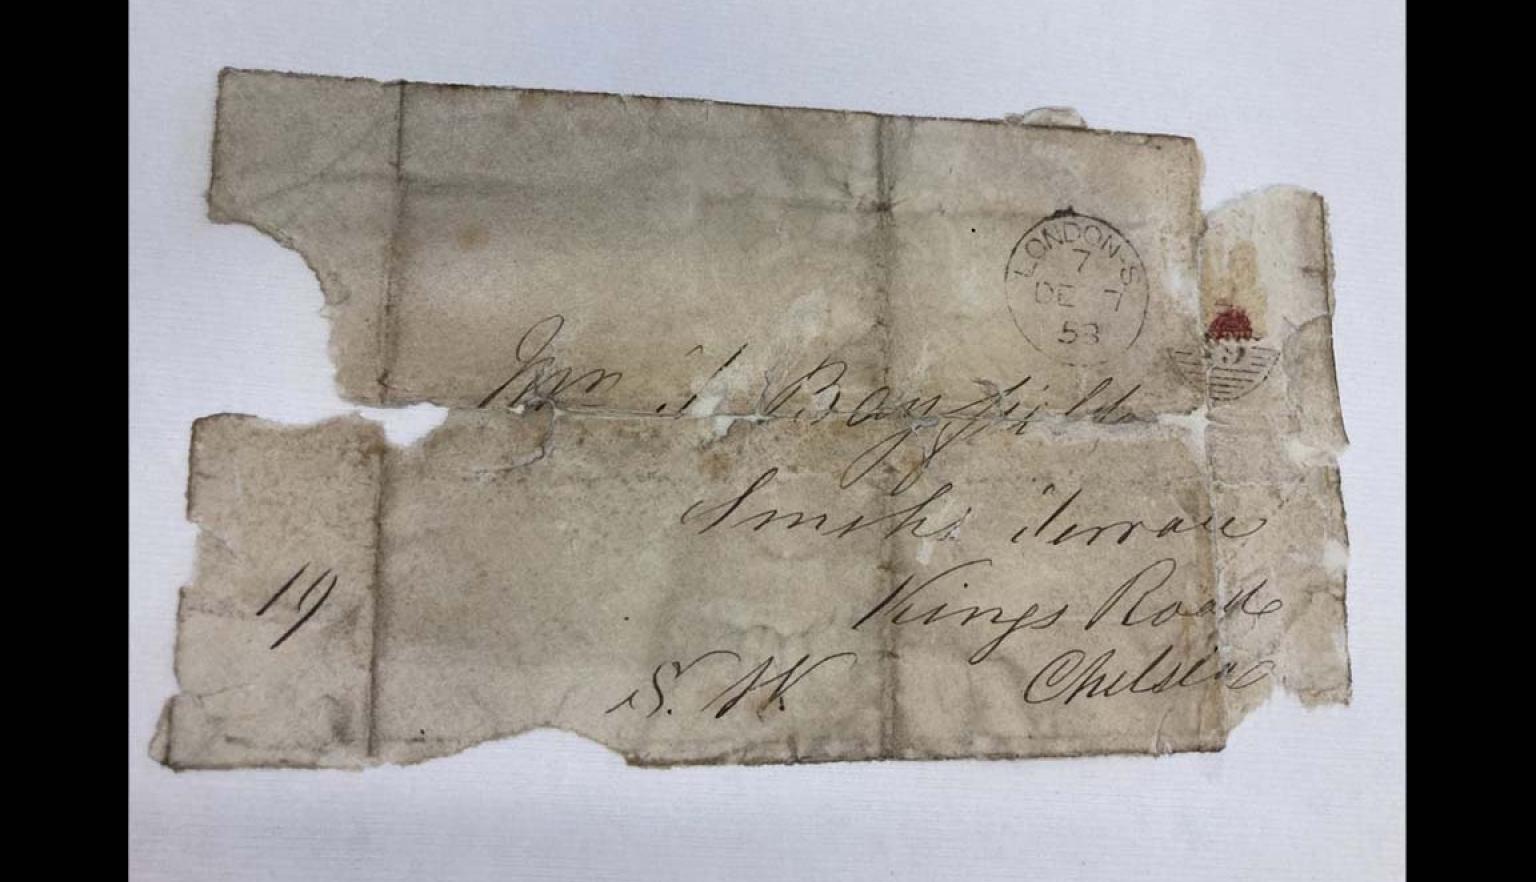 LONDON-S
7
DE 7
58
9
Bayfield
Smiths Terrace
19
Kings Road
S. W.
Chelsea